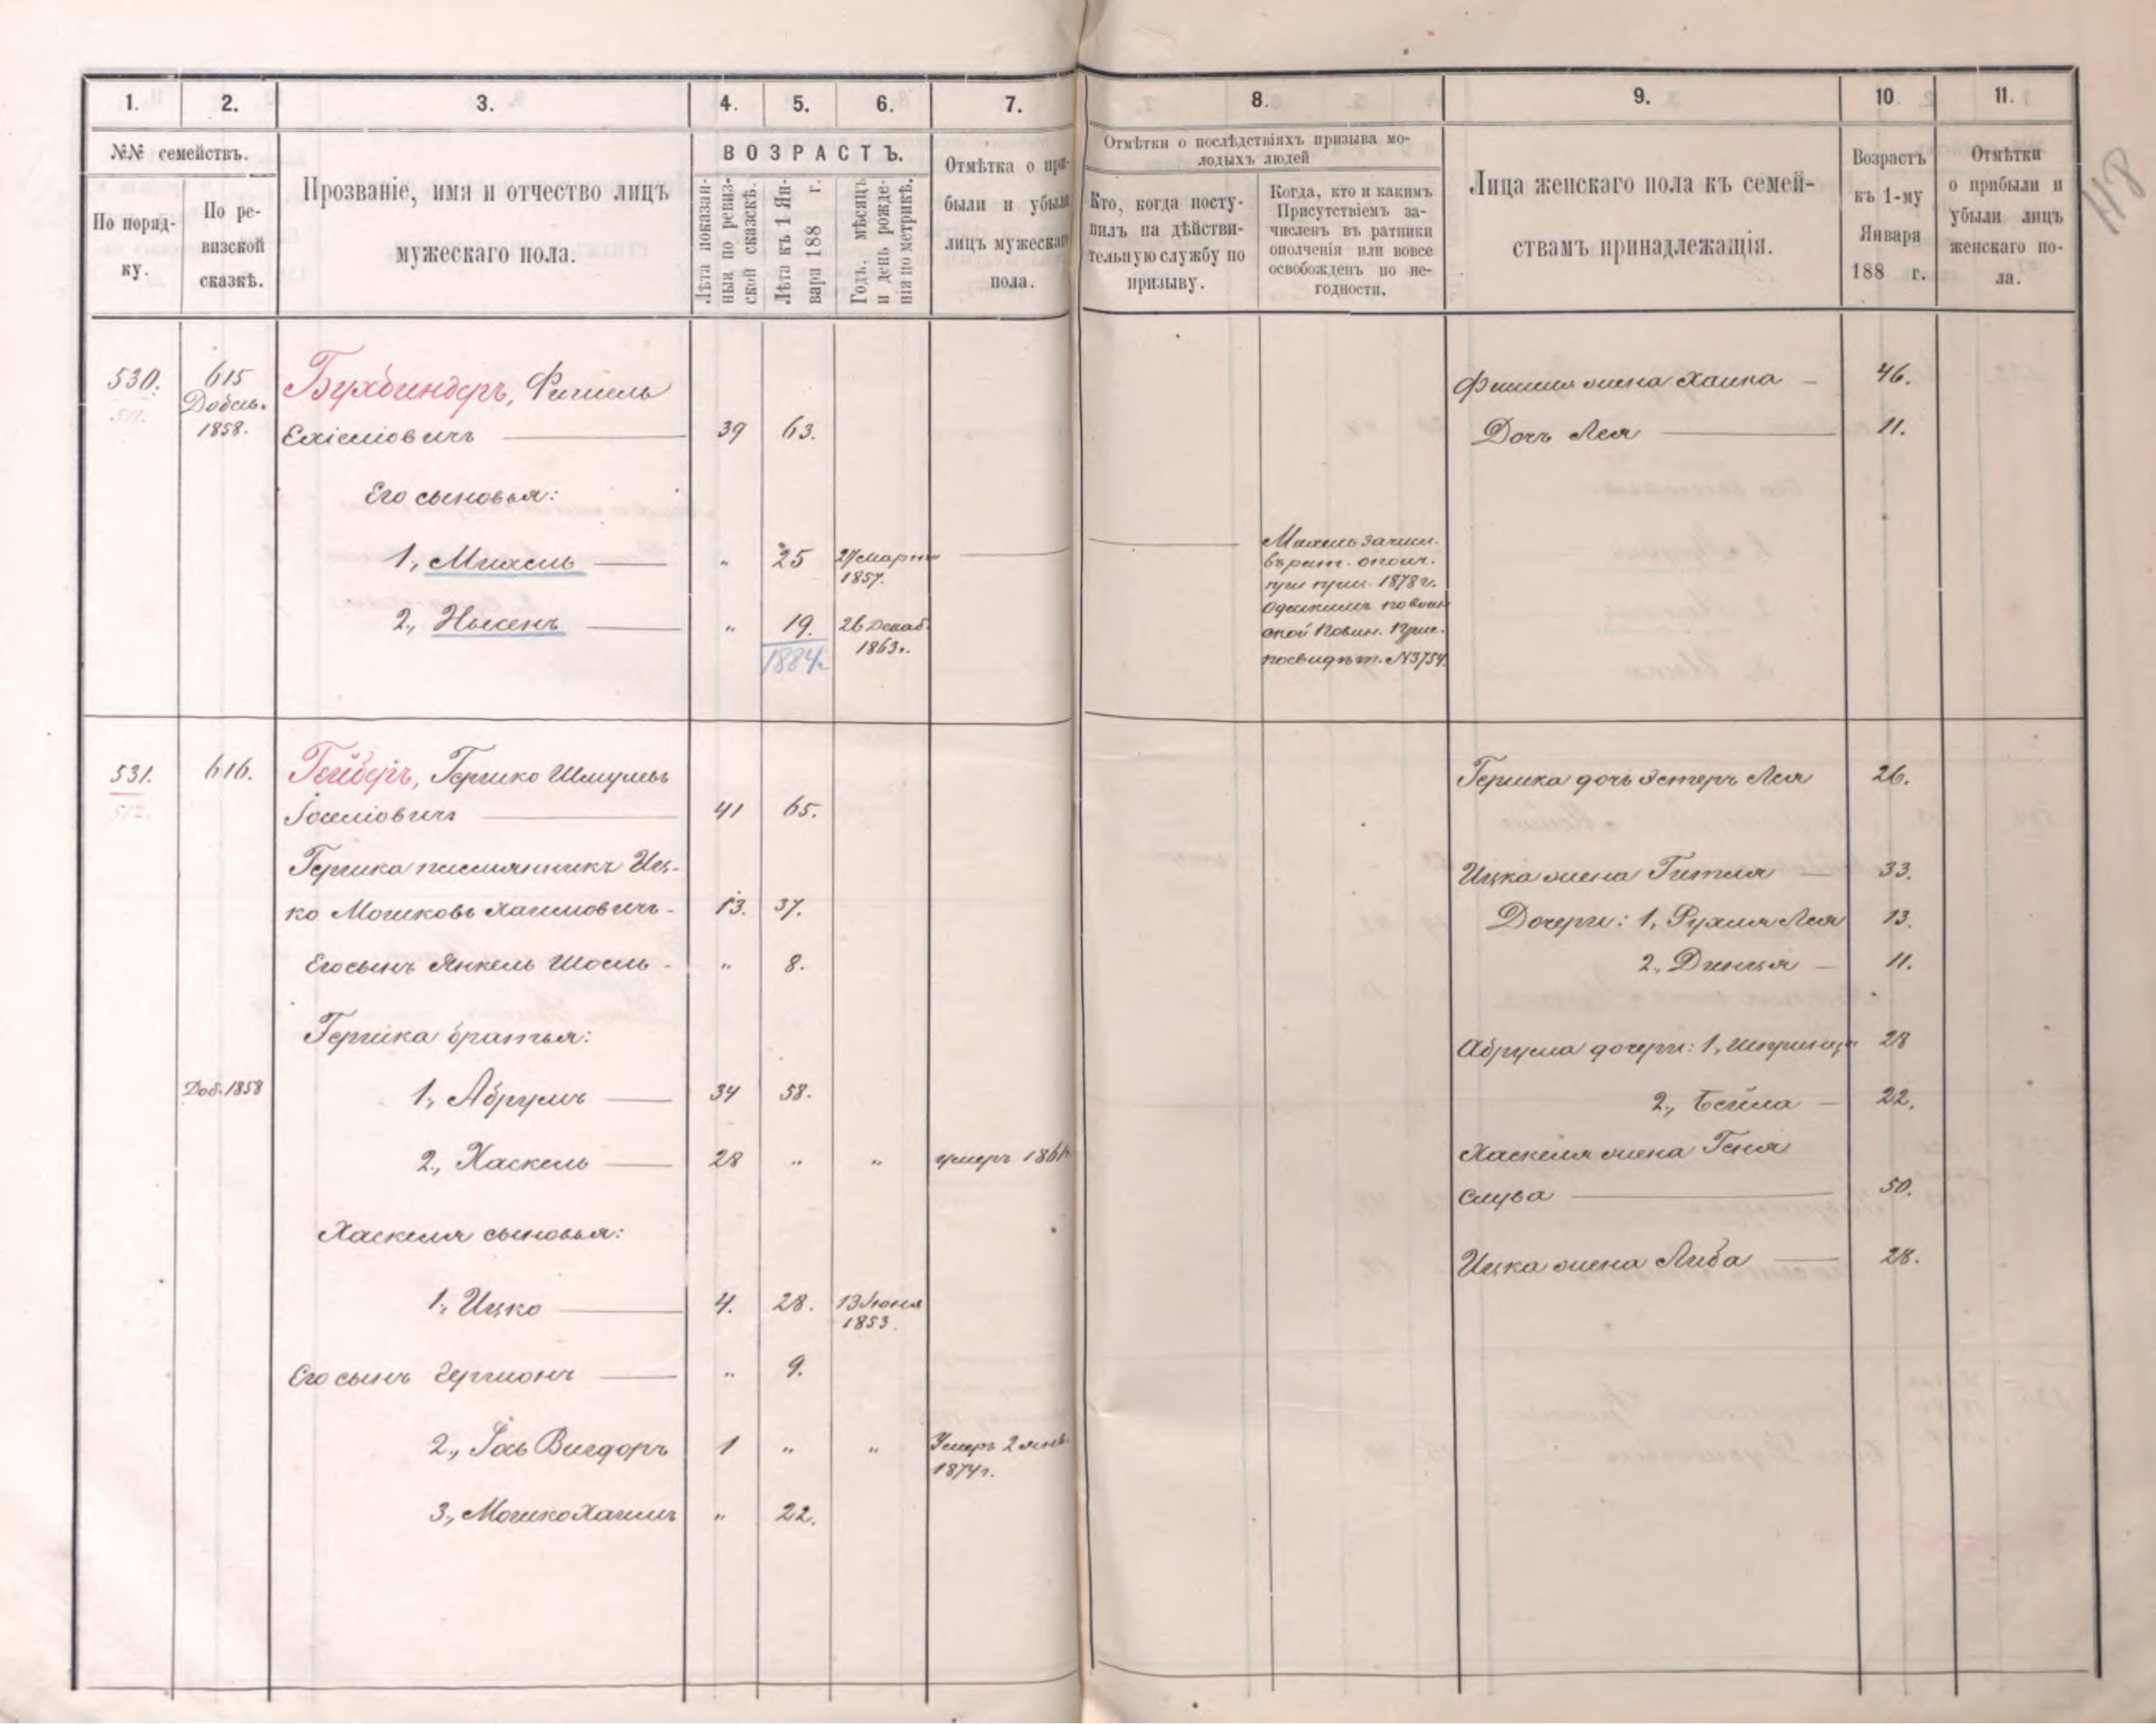 118
1. 2. 3. 4. 5. 6. 7. 8. 9. 10. 11.
№№ семействъ.
По поряд-
ку.
По ре-
визской
сказкѣ.
Прозваніе, имя и отчество лицъ
мужескаго пола.
ВОЗРАСТЪ.
Лѣта показан-
ныя по ревиз-
ской сказкѣ.
Лѣта къ 1 Ян-
варя 188 г.
Годъ, мѣсяцъ
и день рожде-
нія по метрикѣ.
Отмѣтка о при-
были и убыли
лицъ мужескаго
пола.
Отмѣтки о послѣдствіяхъ призыва мо-
лодыхъ людей
Кто, когда посту-
пилъ на дѣйстви-
тельную службу по
призыву.
Когда, кто и какимъ
Присутствіемъ за-
численъ въ ратники
ополченія или вовсе
освобожденъ по не-
годности.
Лица женскаго пола къ семей-
ствамъ принадлежащія.
Возрастъ
къ 1-му
Января
188 г.
Отмѣтки
о прибыли и
убыли лицъ
женскаго по-
ла.
530. 615 Бухбиндеръ, Фишель
511. Добав.
1858. Ехіеліовичъ 39 63.
Его сыновья:
1, Михель " 25 27 Марта
1857.
2, Нысенъ " 19. 26 Декаб.
1884 г. 1863 г.
Михель зачисл.
въ рат. ополч.
при приз. 1878 г.
по воин
ской Повин. Прис.
по свидѣт. №3754.
Фишеля жена Хайка 46.
Дочь Лея 11.
531. 616. Гейберъ, Гершко Шмулевъ
512. Іоселіовичъ 41 65.
Гершка племянникъ Иц-
ко Мошковъ Хаимовичъ 13. 37.
Его сынъ Янкель Шоель " 8.
Гершка братья:
Доб. 1858 1, Абрумъ 34 58.
2, Хаскель 28 " " умеръ 1861
Хаскеля сыновья:
1, Ицко 4. 28. 13 Іюня
1853.
Его сынъ Гершонъ " 9.
2, Іось Вигдоръ 1 " " Умеръ 2 янв.
1874 г.
3, Мошко Хаимъ " 22.
Гершка дочь Эстеръ Лея 26.
Ицка жена Гитля 33.
Дочери: 1, Рухля Лея 13.
2, Динця 11.
Абрума дочери: 1, Шпринца 28
2, Бейла 22.
Хаскеля жена Геня
Слува 50.
Ицка жена Либа 28.